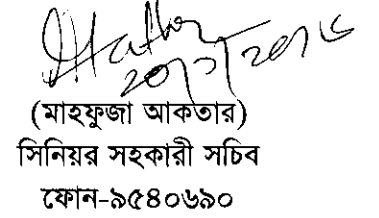 ২০/১/২০১৬
(মাহফুজা আকতার)
সিনিয়র সহকারী সচিব
ফোন-৯৫৪০৬৯০